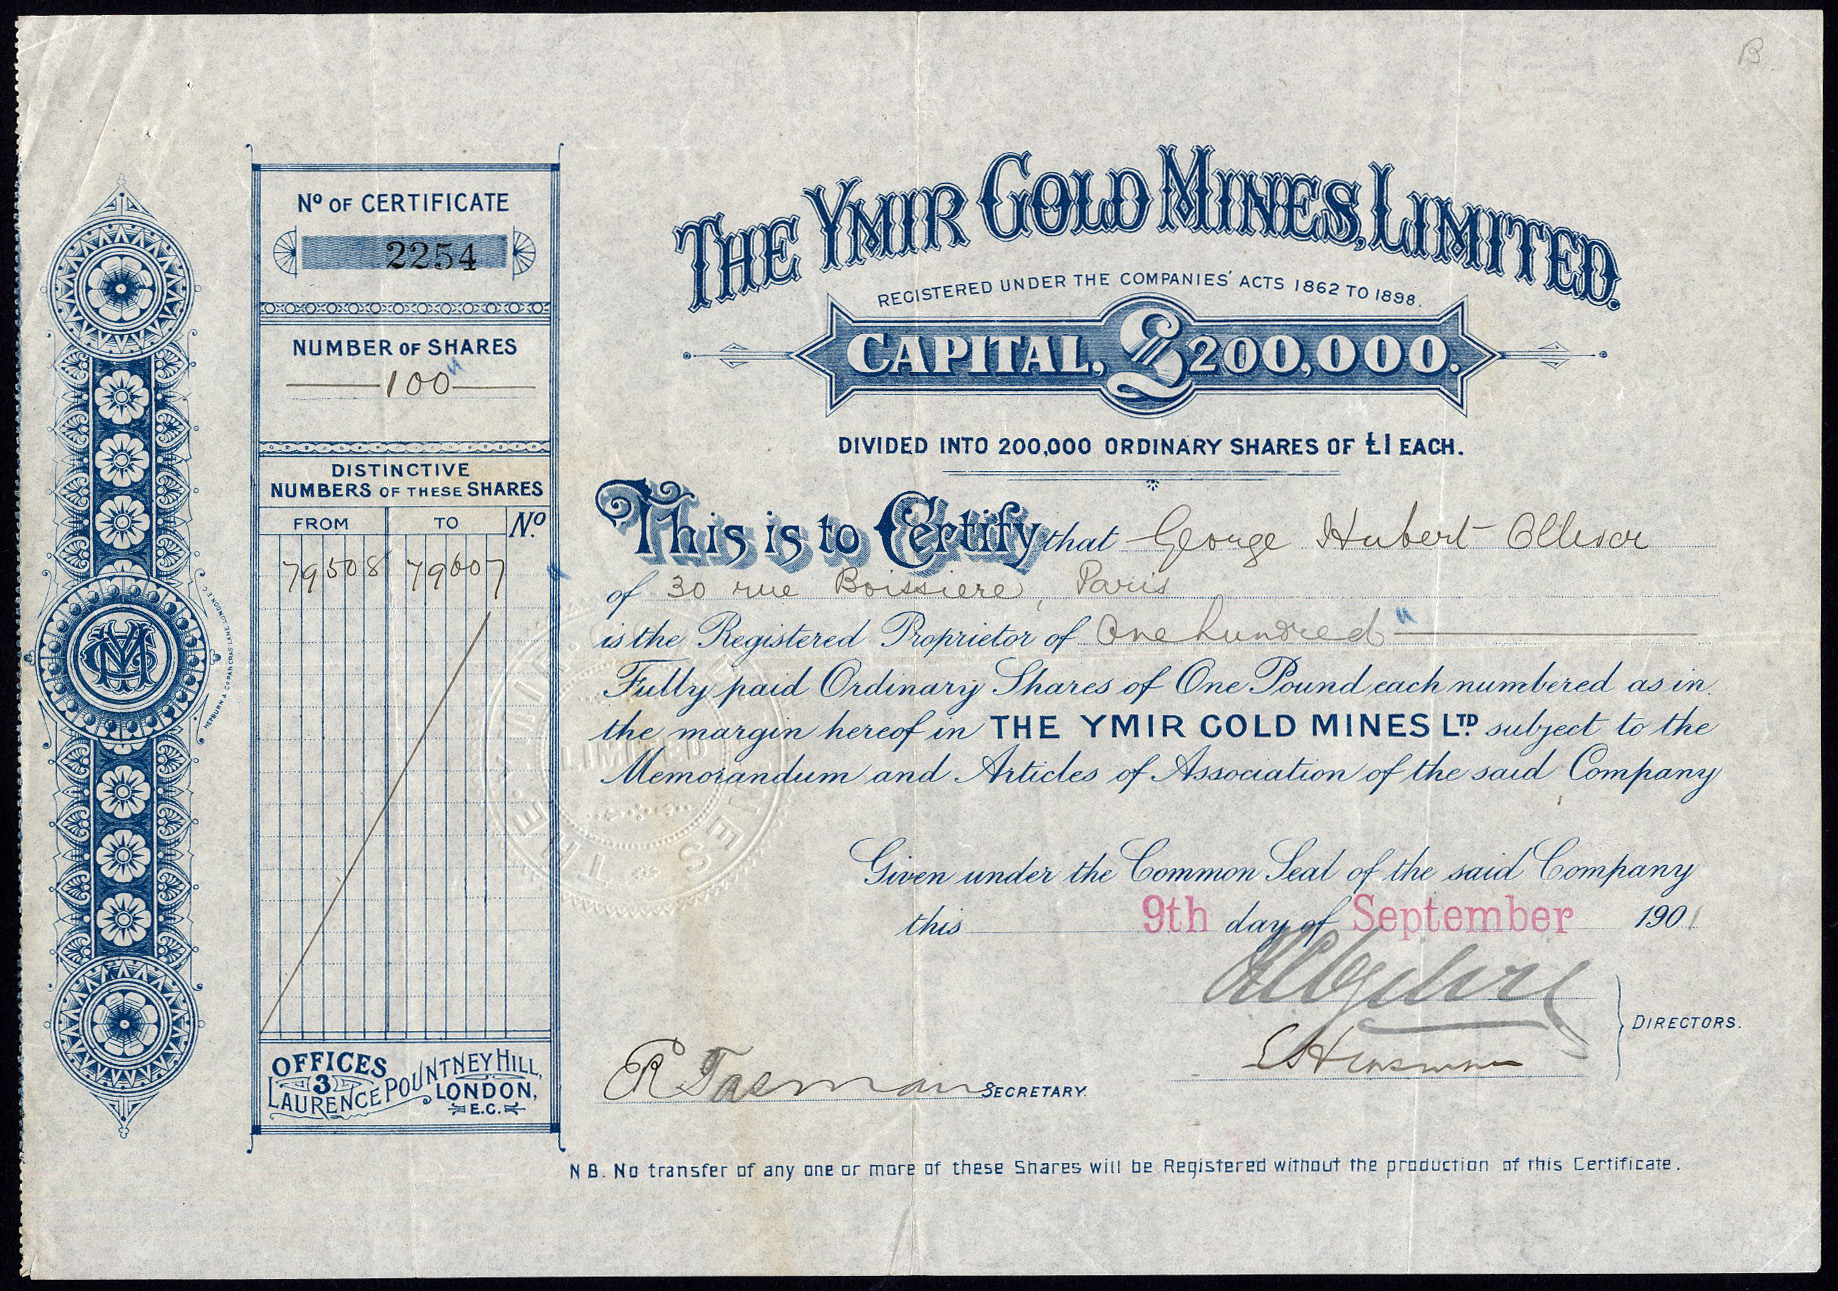 B
Nº OF CERTIFICATE
2254
NUMBER OF SHARES
100
DISTINCTIVE
NUMBERS OF THESE SHARES
FROM TO Nº
79508 79607
OFFICES
3
LAURENCE POUNTNEY HILL,
LONDON,
E.C.
THE YMIR GOLD MINES, LIMITED.
REGISTERED UNDER THE COMPANIES' ACTS 1862 TO 1898.
CAPITAL, £200,000.
DIVIDED INTO 200,000 ORDINARY SHARES OF £1 EACH.
This is to Certify that George Hubert
of 30 rue Boissiere, Paris
is the Registered Proprietor of One hundred
Fully paid Ordinary Shares of One Pound each numbered as in
the margin hereof in THE YMIR GOLD MINES LTD. subject to the
Memorandum and Articles of Association of the said Company
Given under the Common Seal of the said Company
this 9th day of September 1901
DIRECTORS.
R Tasman SECRETARY.
THE YMIR MINES
LIMITED
N B. No transfer of any one or more of these Shares will be Registered without the production of this Certificate.